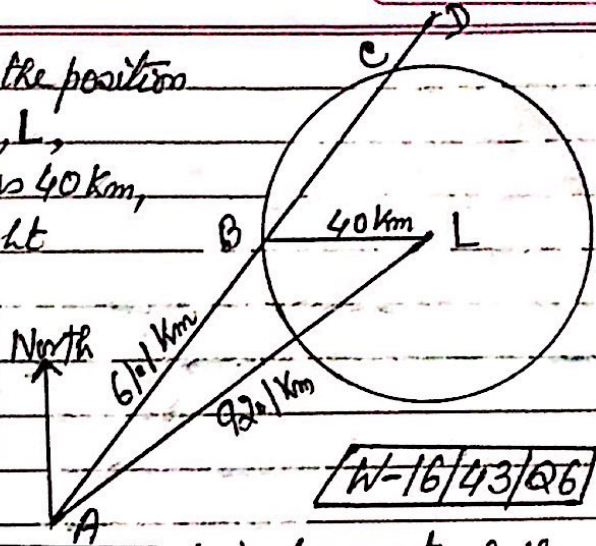 D
C
the position
, L,
is 40 km,
ht
B
40 km
L
North
61.1 km
92.1 km
W-16/43/Q6
A